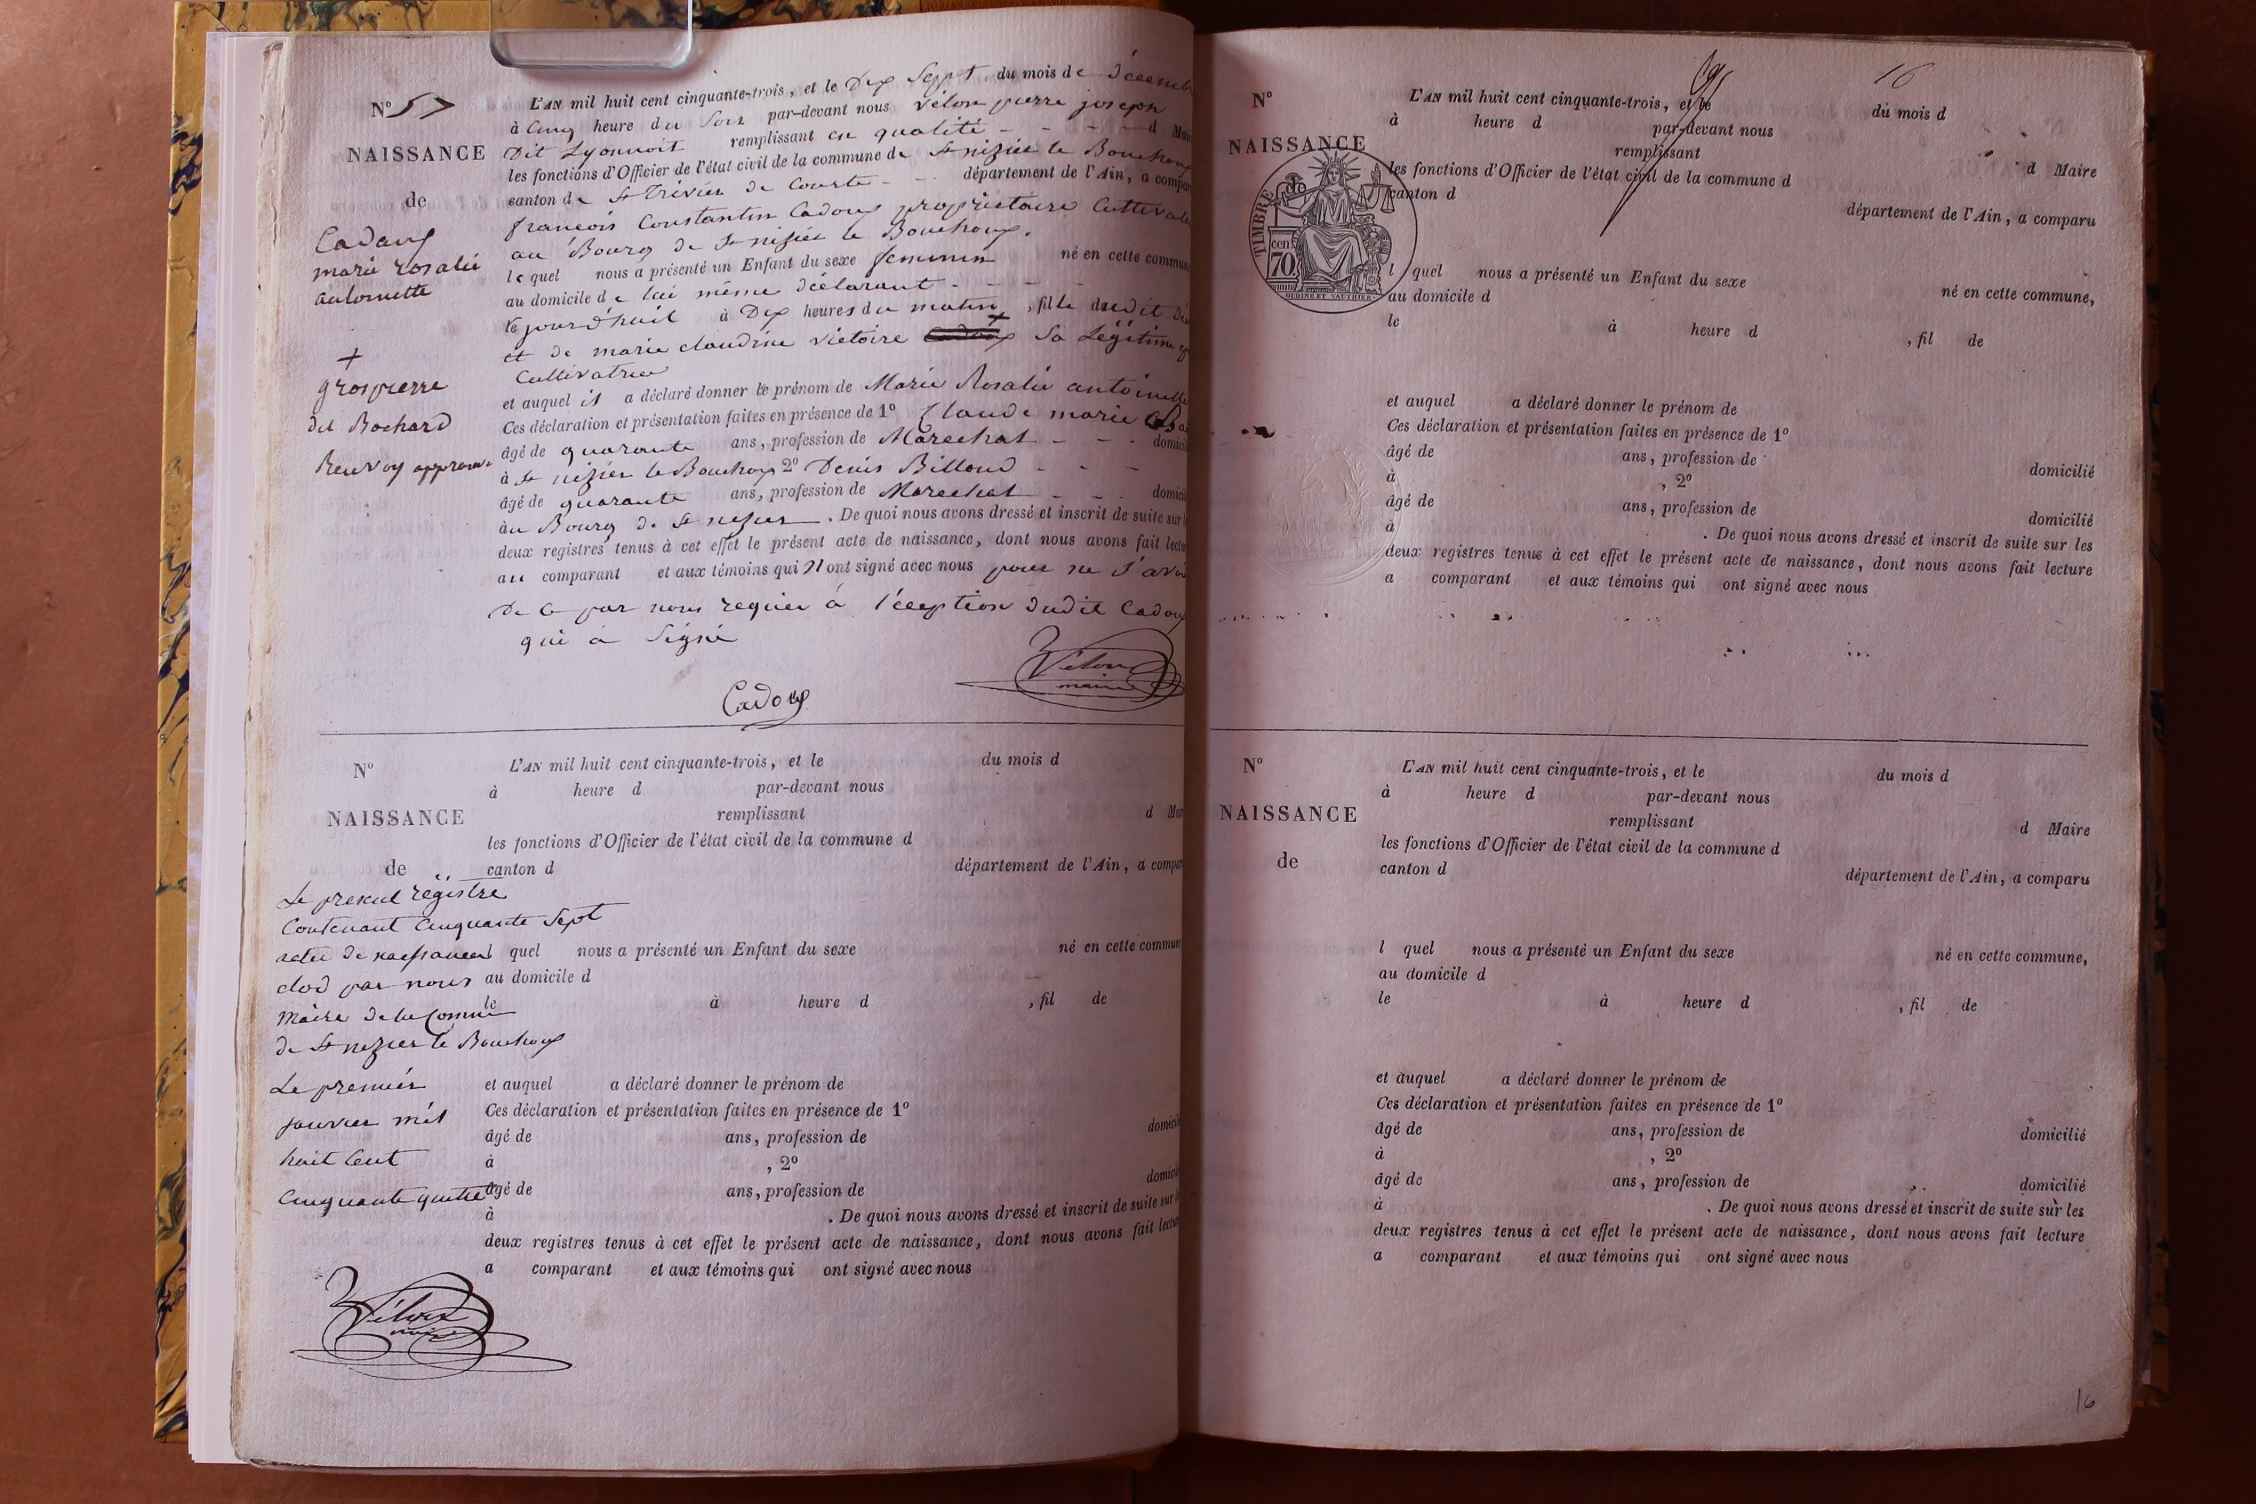 Nº 57
NAISSANCE
de
Cadoux
marie rosalie
antoinette
+
grospierre
dit Bochard
Renvoy approuvé
L'AN mil huit cent cinquante-trois, et le Dix Sept du mois de Décemb
à Cinq heure du Soir par-devant nous Vélon pierre joseph
Dit Lyonnoit remplissant en qualité - - - - d Mai
les fonctions d'Officier de l'état civil de la commune de St nizier le Bouchoux
canton de St Trivier de Courte - - département de l'Ain, a compar
françois Constantin Cadoux propriétaire Cultivate
au Bourg de St nizier le Bouchoux.
lequel nous a présenté un Enfant du sexe feminin né en cette commun
au domicile de lui même déclarant - - - -
le jourd'huit à Dix heures du matin, fille dudit Dé
et de marie claudine victoire + Sa Légitime ep
Cultivatrice
et auquel il a déclaré donner le prénom de Marie Rosalie antoinette
Ces déclaration et présentation faites en présence de 1º Claude marie
âgé de quarante ans, profession de Marechal - - - domicil
à St nizier le Bouchoux 2º Denis Billoud - - -
âgé de quarante ans, profession de Marechal - - - domicil
au Bourg de St nizier. De quoi nous avons dressé et inscrit de suite sur l
deux registres tenus à cet effet le présent acte de naissance, dont nous avons fait lectu
au comparant et aux témoins qui n ont signé avec nous pour ne s'avoi
De Ce par nous requier à l'éception dudit Cadoux
qui a Signé
Cadoux
Vélon
maire
Nº
NAISSANCE
de
L'AN mil huit cent cinquante-trois, et le du mois d
à heure d par-devant nous
remplissant d Mai
les fonctions d'Officier de l'état civil de la commune d
canton d département de l'Ain, a compar
Le present régistre
Contenant Cinquante Sept
actes de naissances
clod par nous
Maire de la Comune
de St nizier le Bouchoux
Le premier
janvier mil
huit Cent
Cinquante quatre
l quel nous a présenté un Enfant du sexe né en cette commun
au domicile d
le à heure d , fil de
et auquel a déclaré donner le prénom de
Ces déclaration et présentation faites en présence de 1º
âgé de ans, profession de domicil
à , 2º
âgé de ans, profession de domicil
à . De quoi nous avons dressé et inscrit de suite sur l
deux registres tenus à cet effet le présent acte de naissance, dont nous avons fait lectu
a comparant et aux témoins qui ont signé avec nous
Vélon
maire
16
Nº
NAISSANCE
TIMBRE
70 cen
OUDINE ET GAUTHIER
L'AN mil huit cent cinquante-trois, et le du mois d
à heure d par-devant nous
remplissant d Maire
les fonctions d'Officier de l'état civil de la commune d
canton d département de l'Ain, a comparu
l quel nous a présenté un Enfant du sexe né en cette commune,
au domicile d
le à heure d , fil de
et auquel a déclaré donner le prénom de
Ces déclaration et présentation faites en présence de 1º
âgé de ans, profession de domicilié
à , 2º
âgé de ans, profession de domicilié
à . De quoi nous avons dressé et inscrit de suite sur les
deux registres tenus à cet effet le présent acte de naissance, dont nous avons fait lecture
a comparant et aux témoins qui ont signé avec nous
Nº
NAISSANCE
de
L'AN mil huit cent cinquante-trois, et le du mois d
à heure d par-devant nous
remplissant d Maire
les fonctions d'Officier de l'état civil de la commune d
canton d département de l'Ain, a comparu
l quel nous a présenté un Enfant du sexe né en cette commune,
au domicile d
le à heure d , fil de
et auquel a déclaré donner le prénom de
Ces déclaration et présentation faites en présence de 1º
âgé de ans, profession de domicilié
à , 2º
âgé de ans, profession de domicilié
à . De quoi nous avons dressé et inscrit de suite sur les
deux registres tenus à cet effet le présent acte de naissance, dont nous avons fait lecture
a comparant et aux témoins qui ont signé avec nous
16